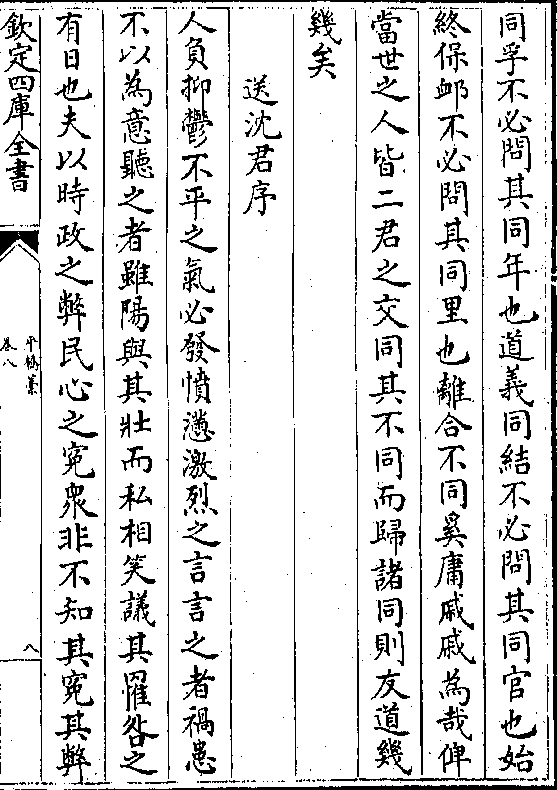 同孚不必問其同年也道義同結不必問其同官也始
終保䘏不必問其同里也離合不同奚庸戚戚為哉俾
當世之人皆二君之交同其不同而歸諸同則友道幾
幾矣
送沈君序
人負抑鬱不平之氣必發憤懣激烈之言言之者禍患
不以為意聽之者雖陽與其壯而私相笑議其罹咎之
有日也夫以時政之弊民心之寃衆非不知其寃其弊
欽定四庫全書
平橋藁
卷八
八